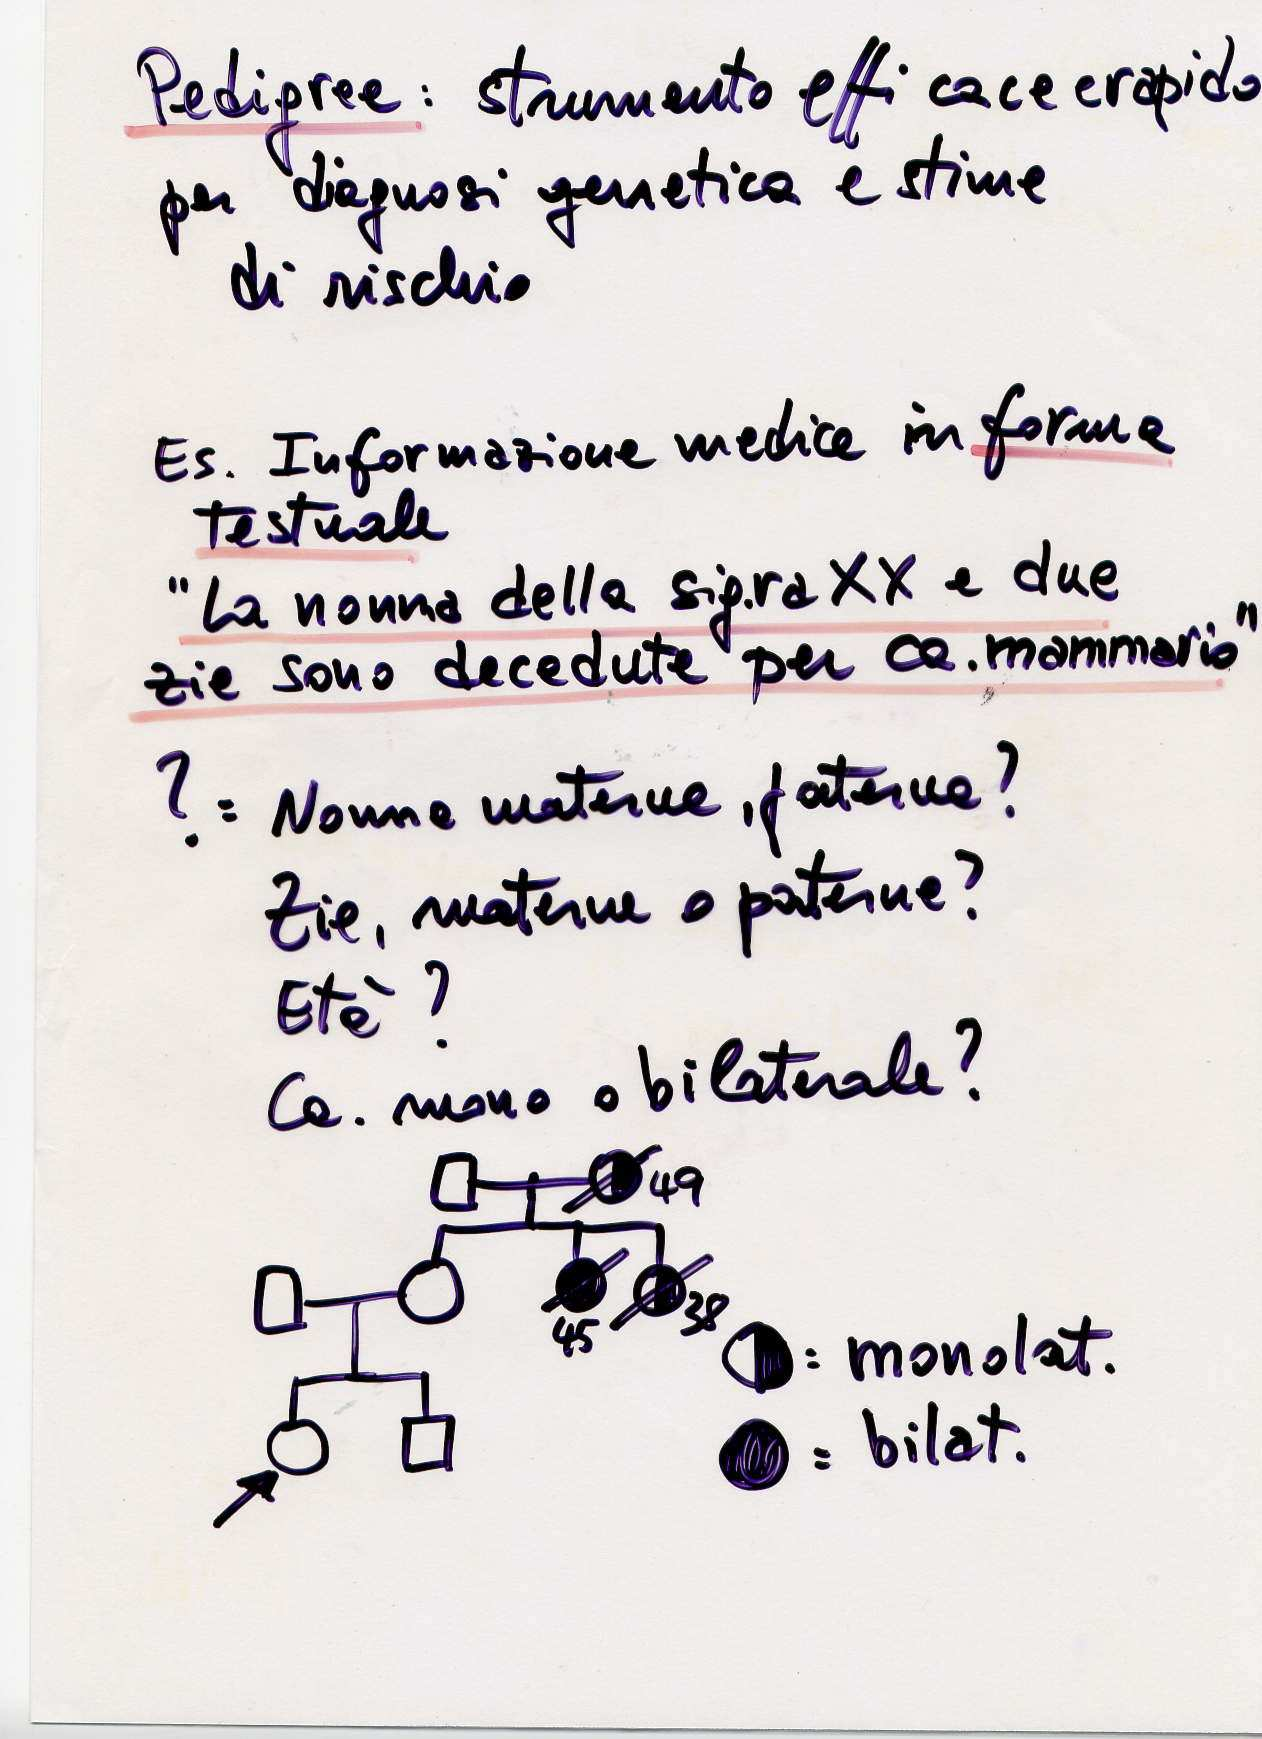 Pedigree: strumento efficace e rapido
per diagnosi genetica e stime
di rischio
Es. Informazione medica in forma
testuale
"La nonna della sig.ra XX e due
zie sono decedute per ca. mammario"
? = Nonna materna, paterna?
Zie, materne o paterne?
Età?
Ca. mono o bilaterale?
49
45
38
= monolat.
= bilat.